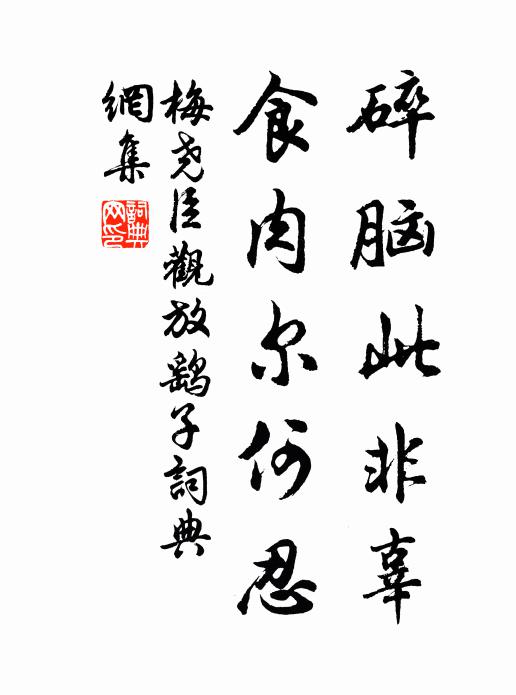 碎脑此非辜
食肉尔何忍
梅尧臣觀放鷂子詞典
網集
詞典網印